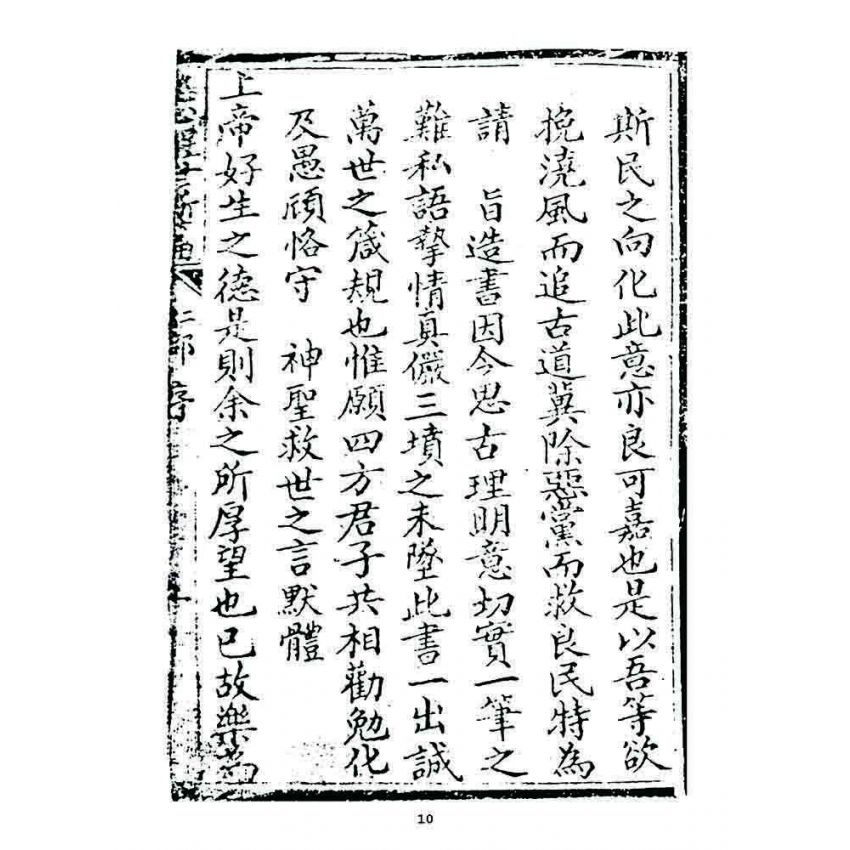 斯民之向化此意亦良可嘉也是以吾等欲
挽澆風而追古道冀除惡黨而救良民特為
請　旨造書因今思古理明意切實一筆之
難私語摯情真儼三墳之未墜此書一出誠
萬世之箴規也惟願四方君子共相勸勉化
及愚頑恪守　神聖救世之言默體
上帝好生之德是則余之所厚望也已故樂為
10